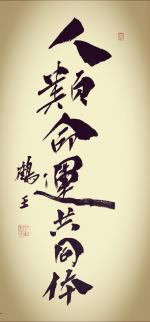 人類命運共同体
鶴王